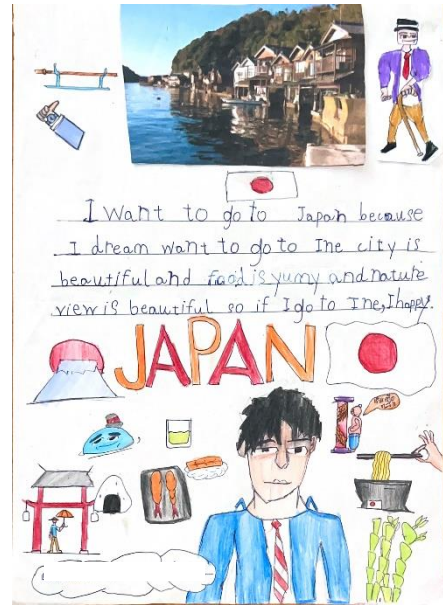 I want to go to Japan because
I dream want to go to Ine city is
beautiful and food is yumy and nature
view is beautiful so if I go to Ine, I happy.
JAPAN